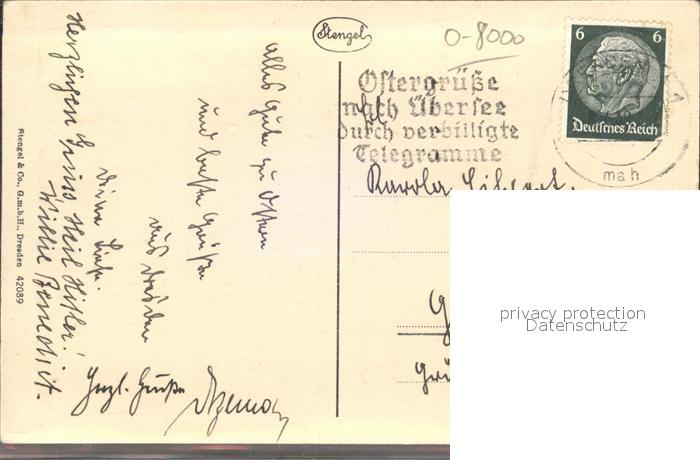 Alles Gute zu Ostern
und beste Grüße
aus Dresden
Herzlichen Gruss Heil Hitler!
Willie Benedict.
Herzl. Grüße
Stengel & Co., G.m.b.H., Dresden 42089
Stengel
0-8000
Ostergrüße
nach Übersee
durch verbilligte
Telegramme
6 6
Deutsches Reich
mah
Karola
privacy protection
Datenschutz